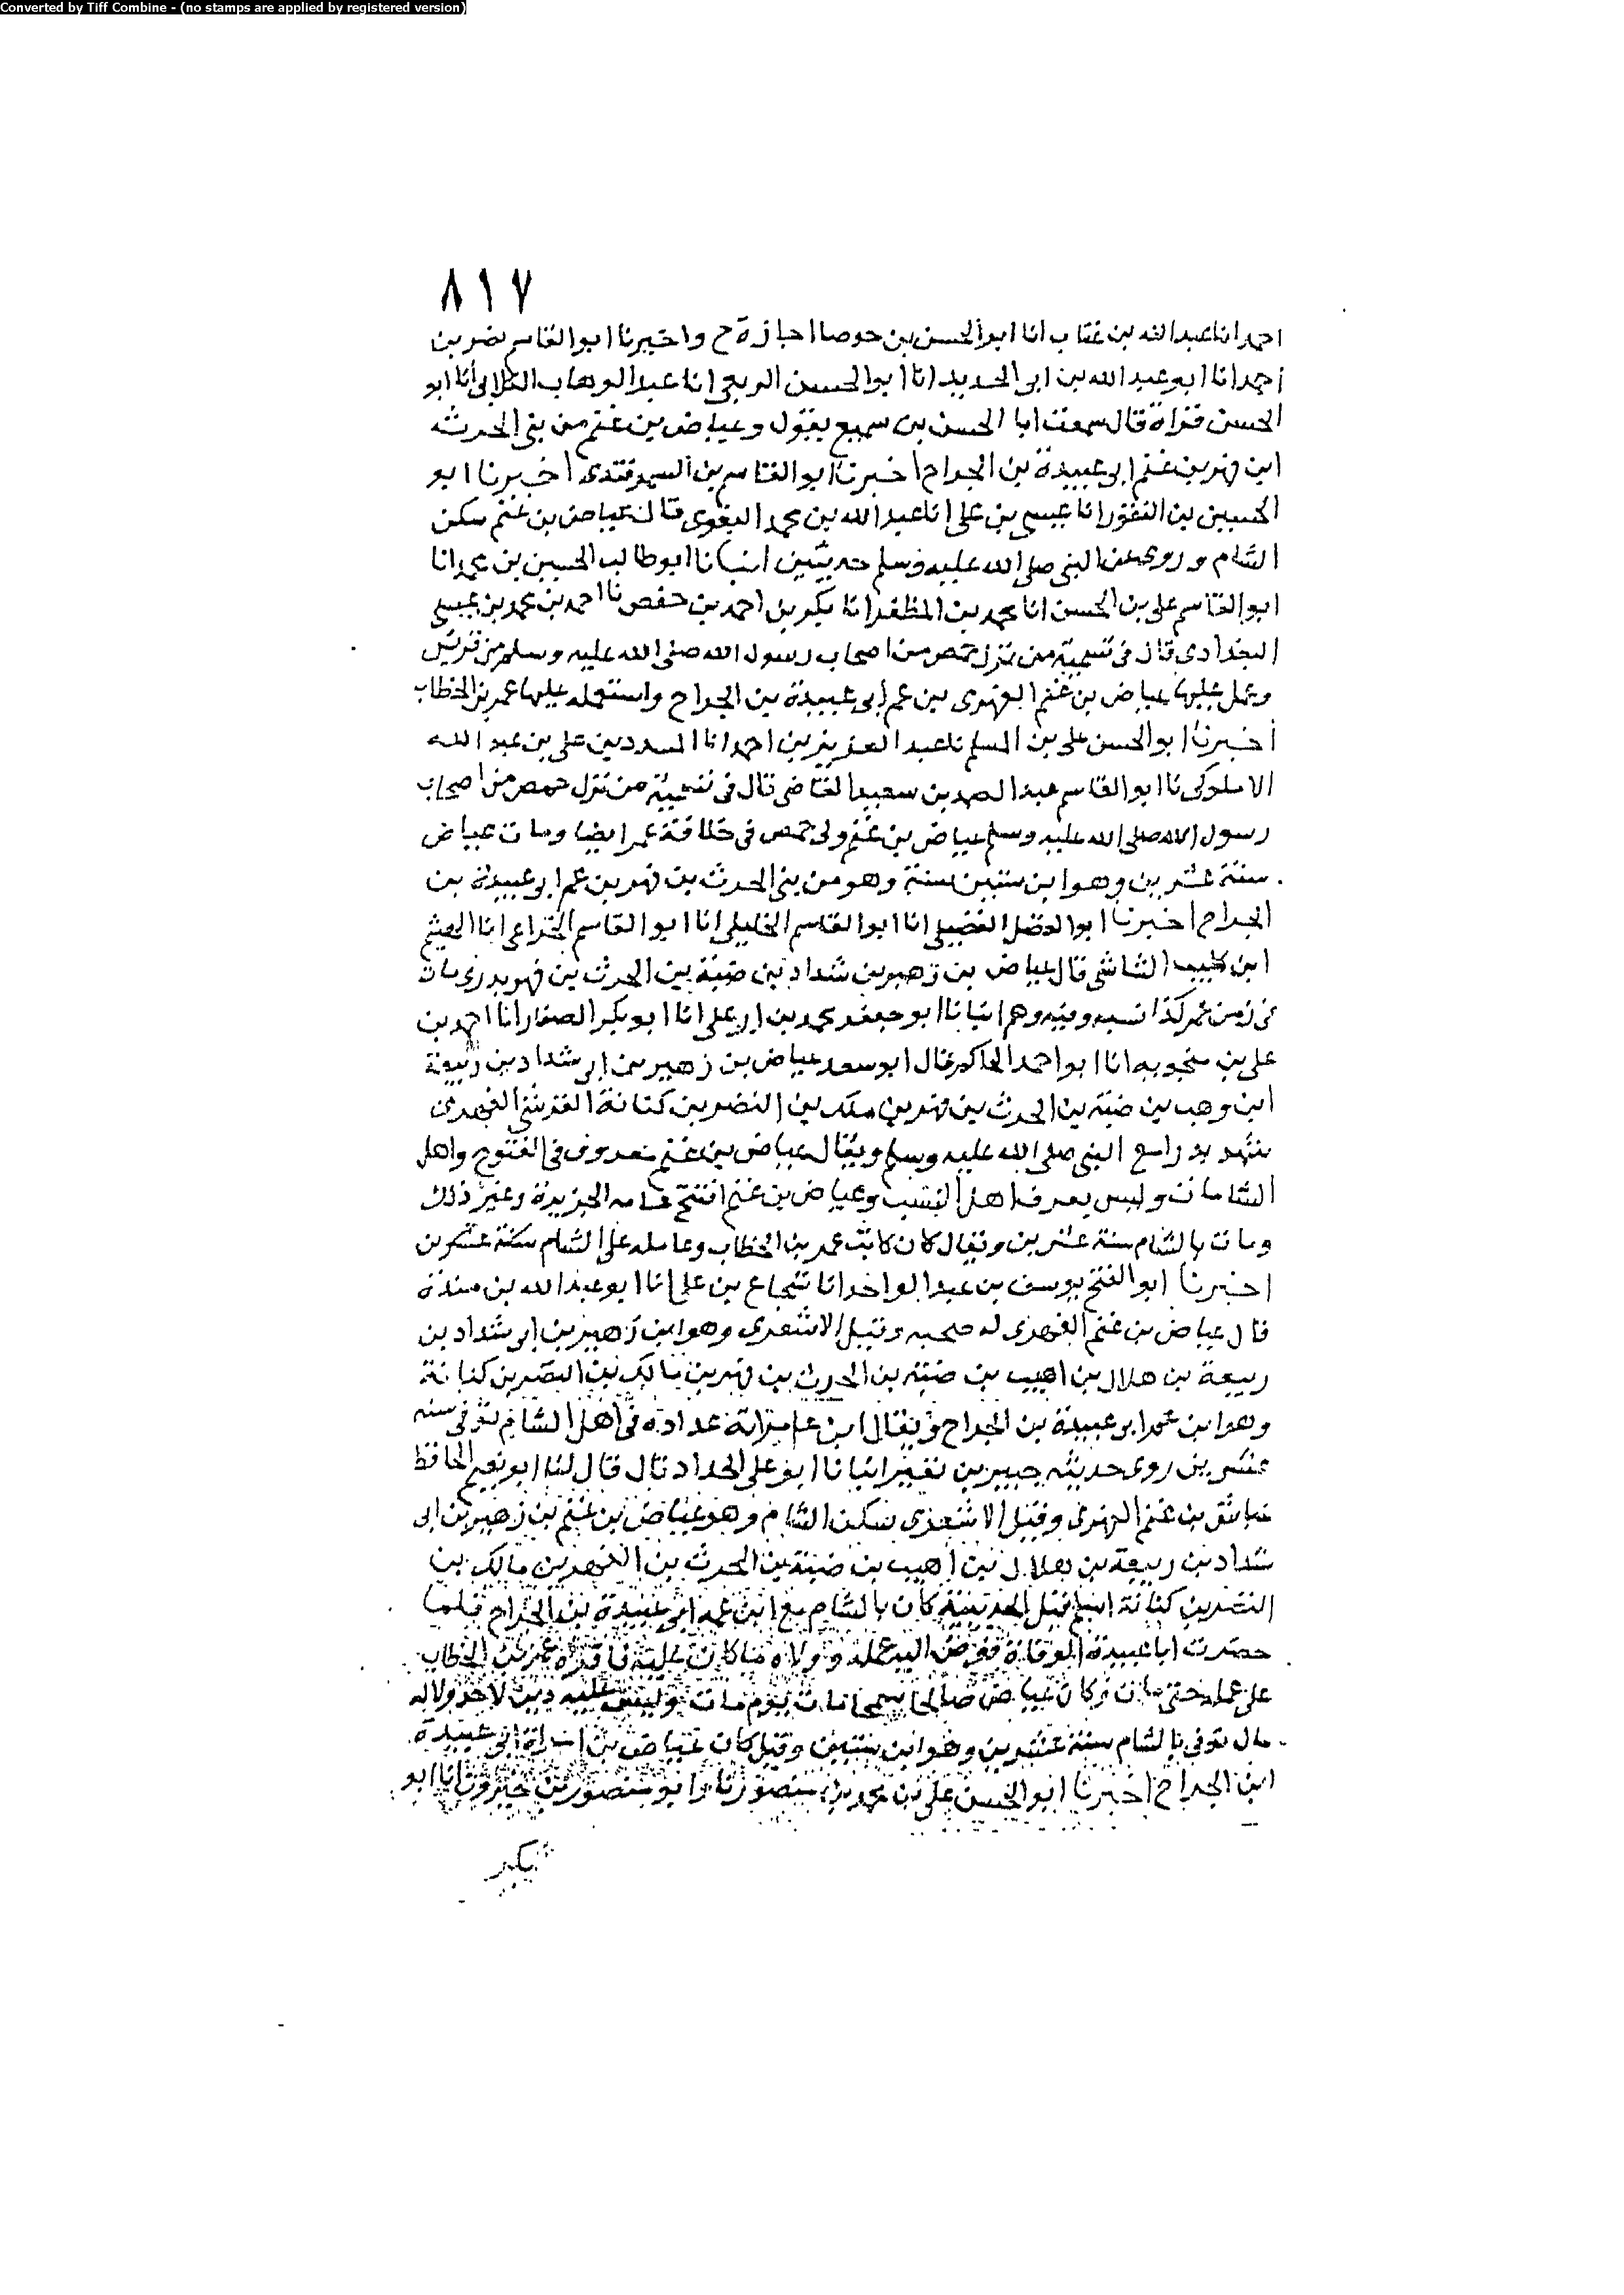 Converted by Tiff Combine - (no stamps are applied by registered version)
٨١٧
احمد انا عبد الله بن عتاب انا ابو الحسن بن جوصا اجازة ح واخبرنا ابو القاسم نصر بن
احمد انا ابو عبد الله بن ابى الحديد انا ابو الحسن الربعى انا عبد الوهاب الكلابى انا ابو
الحسن قراة قال سمعت ابا الحسن بن سميع يقول وعياض بن غنم من بنى الحرث
ابن فهر بن عم ابى عبيدة بن الجراح اخبرنا ابو القاسم بن السمرقندى اخبرنا ابو
الحسين بن النقور انا عيسى بن على انا عبد الله بن محمد البغوى قال عياض بن غنم سكن
الشام وروى عن النبى صلى الله عليه وسلم حديثين انبانا ابو طالب الحسين بن محمد انا
ابو القاسم على بن الحسن انا محمد بن المظفر انا بكر بن احمد بن حفص نا احمد بن محمد بن عيسى
البغدادى قال فى تسمية من نزل حمص من اصحاب رسول الله صلى الله عليه وسلم من قريش
وعمل عليها عياض بن غنم الفهرى بن عم ابى عبيدة بن الجراح واستعمله عليها عمر بن الخطاب
اخبرنا ابو الحسن على بن المسلم نا عبد العزيز بن احمد انا المسدد بن على بن عبد الله
الاملوكى نا ابو القاسم عبد الصمد بن سعيد القاضى قال فى تسمية من نزل حمص من اصحاب
رسول الله صلى الله عليه وسلم عياض بن غنم ولى حمص فى خلافة عمر ايضا ومات عياض
سنة عشرين وهو ابن ستين سنة وهو من بنى الحرث بن فهر بن عم ابو عبيدة بن
الجراح اخبرنا ابو الفضل الفضيلى انا ابو القاسم الخليلى انا ابو القاسم الخزاعى انا الهيثم
ابن كليب الشاشى قال عياض بن زهير بن شداد بن ضبة بن الحرث بن فهر بدرى مات
فى زمن عمر كذا نسبه وفيه وهم انبانا ابو جعفر محمد بن ابى على انا ابو بكر الصفار انا احمد بن
على بن منجويه انا ابو احمد الحاكم قال ابو سعد عياض بن زهير بن ابى شداد بن ربيعة
ابن وهب بن ضبة بن الحرث بن فهر بن ملك بن النضر بن كنانة القرشى الفهرى
شهد بدرا مع النبى صلى الله عليه وسلم ويقال عياض بن غنم معروف فى الفتوح واهل
الشامات وليس يعرف اهل النسب وعياض بن غنم افتتح عامه الجزيرة وغير ذلك
ومات بالشام سنة عشرين ويقال كان كاتب عمر بن الخطاب وعامله على الشام سنة عشرين
اخبرنا ابو الفتح يوسف بن عبد الواحد انا شجاع بن على انا ابو عبد الله بن مندة
قال عياض بن غنم الفهرى له صحبه وقيل الاشعرى وهو ابن زهير بن ابى شداد بن
ربيعة بن هلال بن اهيب بن ضبة بن الحرث بن فهر بن مالك بن النضر بن كنانة
وهو ابن عم ابو عبيدة بن الجراح ويقال ابن امراته عداده فى اهل الشام توفى سنه
عشرين روى حديثه جبير بن نفير انبانا ابو على الحداد قال قال لنا ابو نعيم الحافظ
عياض بن غنم الفهرى وقيل الاشعرى سكن الشام وهو عياض بن غنم بن زهير بن ابى
شداد بن ربيعة بن هلال بن اهيب بن ضبة بن الحرث بن الفهر بن مالك بن
النضر بن كنانة اسلم قبل الحديبية كان بالشام مع ابن عمه ابى عبيدة بن الجراح فلما
حضرت ابا عبيدة الوفاة فوض اليه عمله وولاه ما كان عليه فاقره عمر بن الخطاب
على عمله حتى مات وكان عياض صالحا سمحا مات يوم مات وليس عليه دين لاحد ولا له
مال توفى بالشام سنة عشرين وهو ابن ستين وقيل كان عياض بن امراة ابى عبيدة
ابن الجراح اخبرنا ابو الحسن على بن محمد بن منصور نا وابو منصور بن خيرون انا ابو
بكر